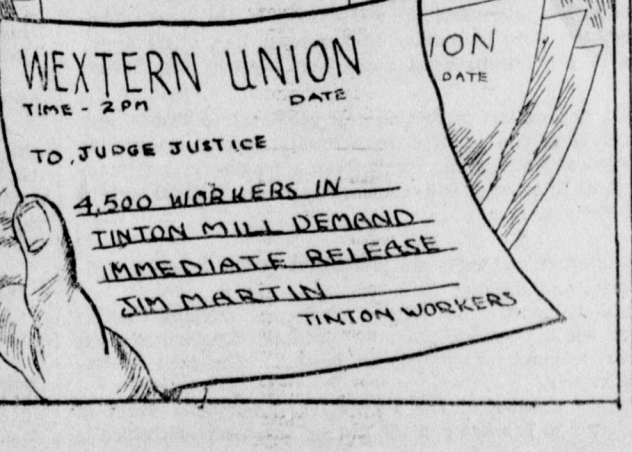 WEXTERN UNION
TIME - 2 PM
DATE
TO, JUDGE JUSTICE
4,500 WORKERS IN
TINTON MILL DEMAND
IMMEDIATE RELEASE
JIM MARTIN
TINTON WORKERS
ION
DATE